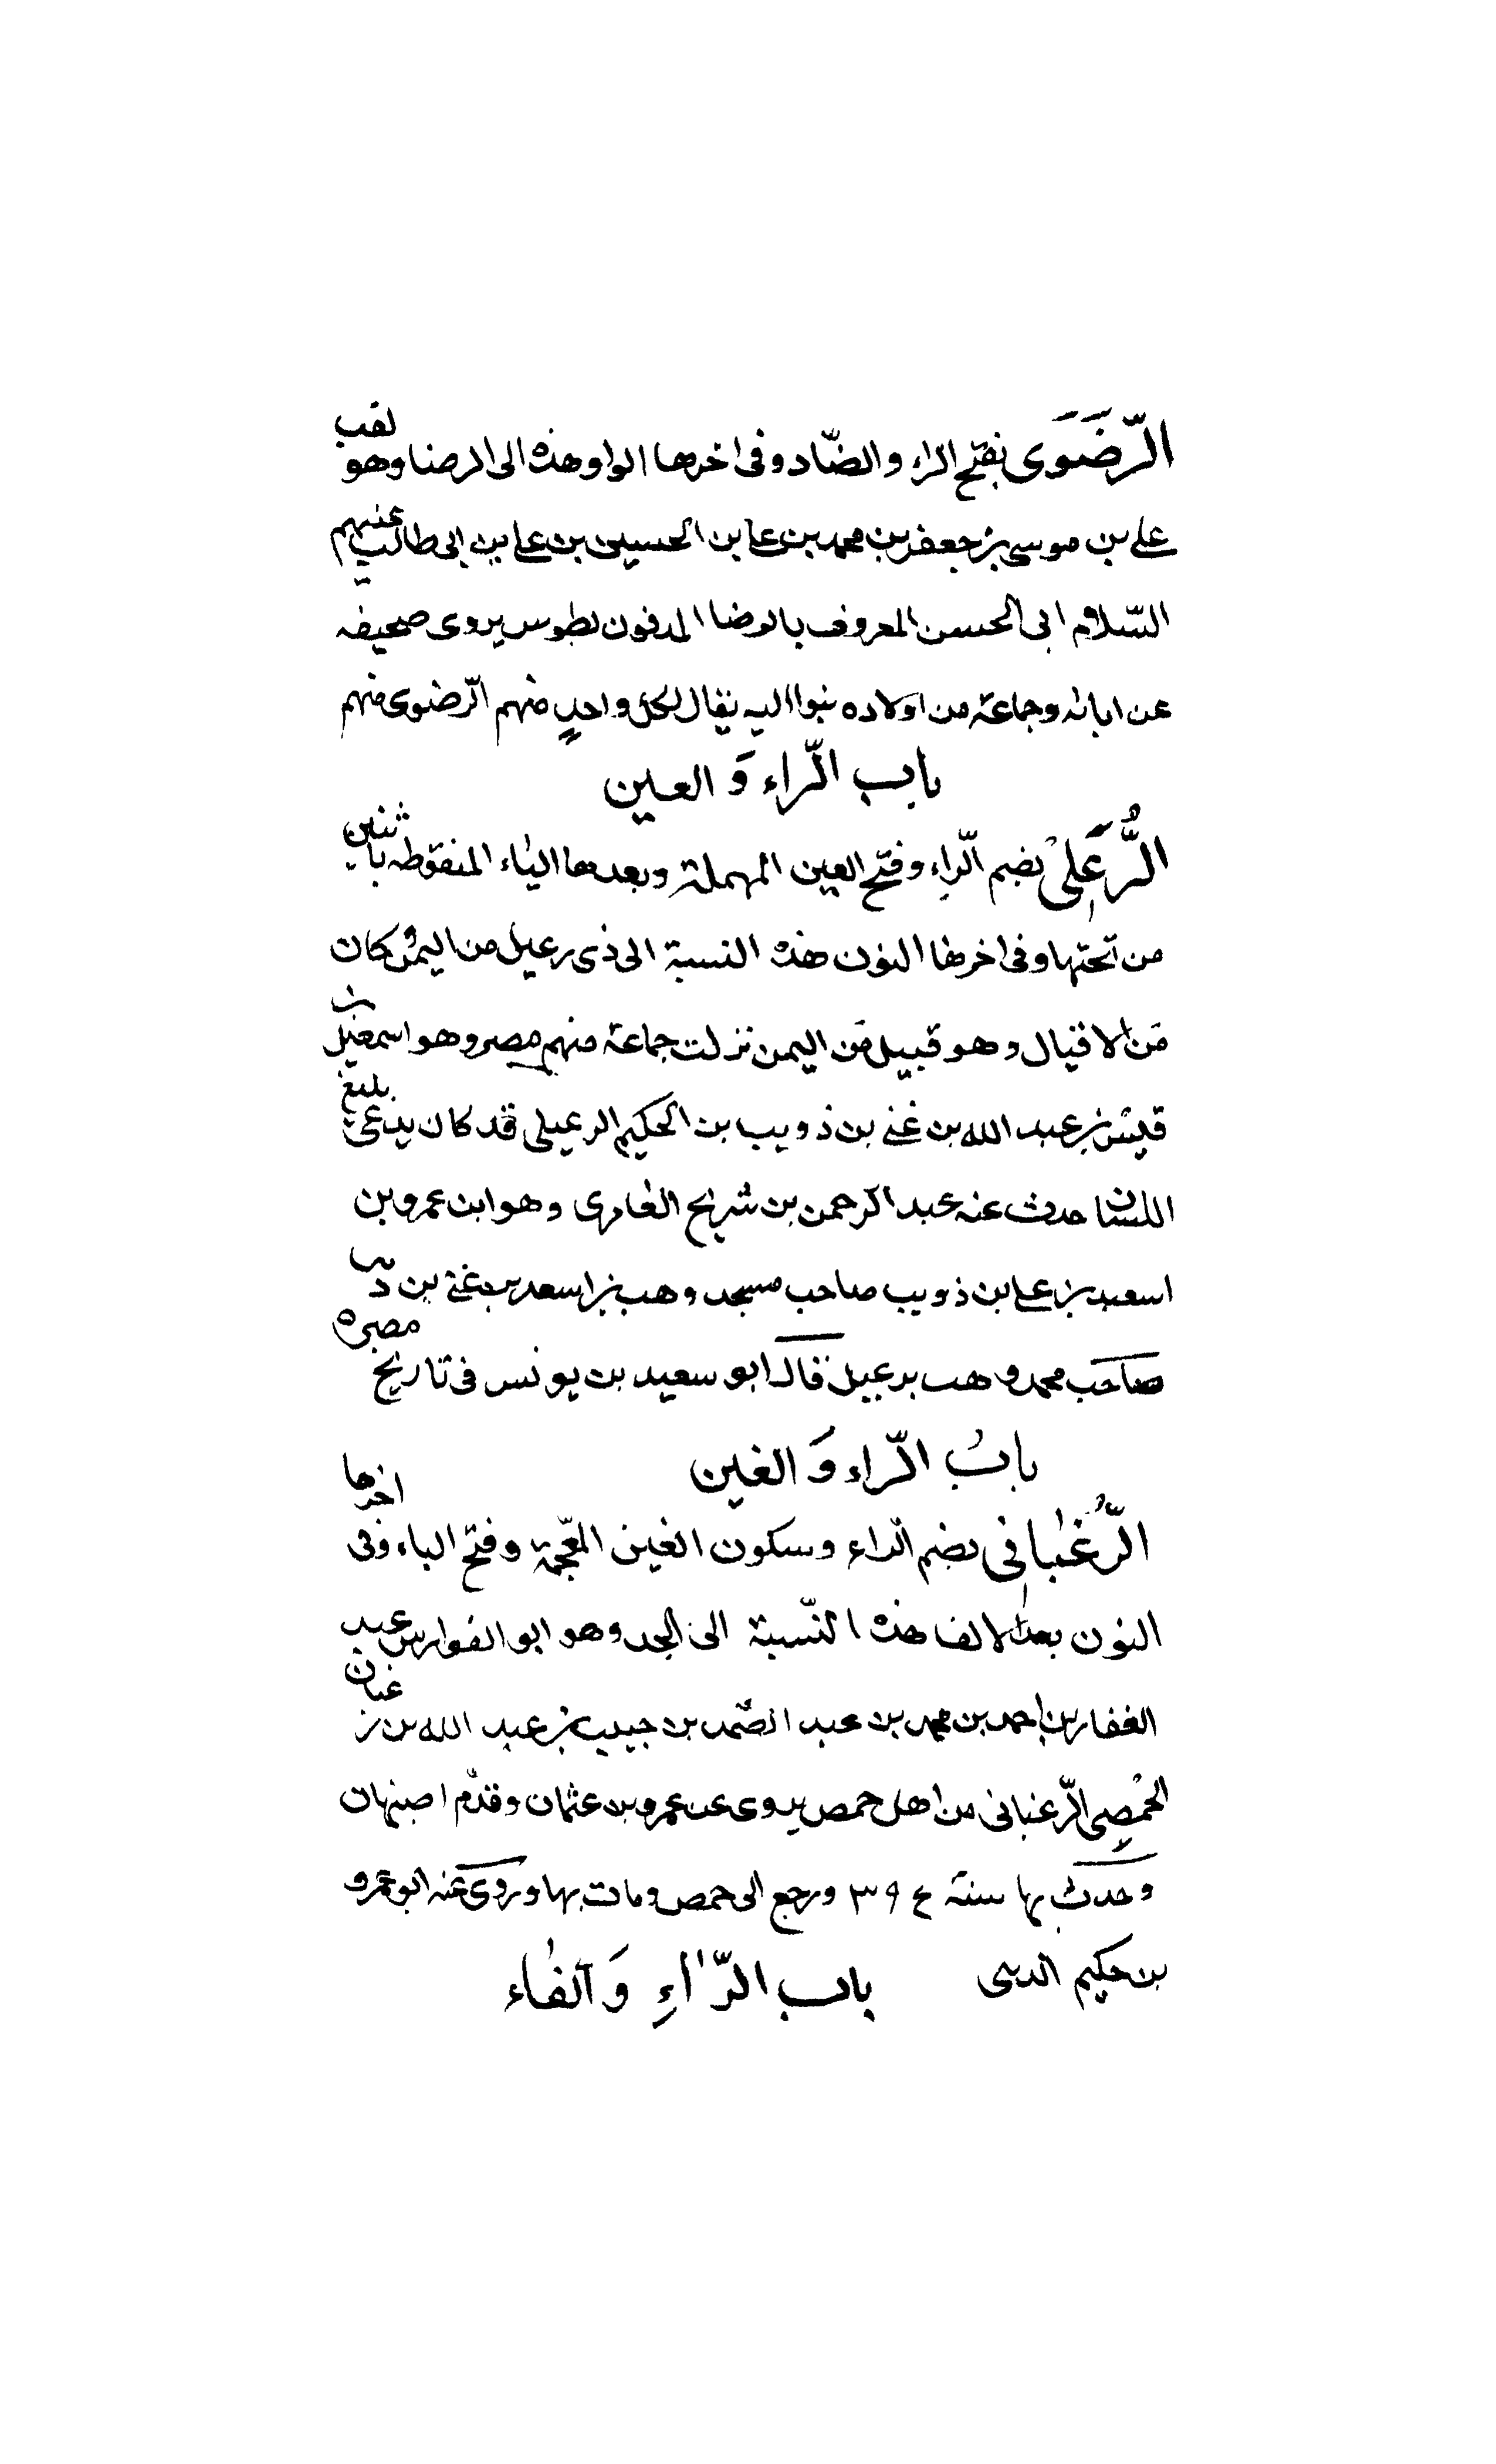 الرَّضَوى بفتح الراء والضّاد وفى اخرها الواو هذه الى الرضا وهو لقب
على بن موسى بن جعفر بن محمد بن على بن الحسين بن على بن ابى طالب عليهم
السّلام ابى الحسن المعروف بالرضا المدفون بطوس يروى صحيفه
عن ابائه وجماعة من اولاده نسبوا اليه يقال لكل واحدٍ منهم الرّضوى منهم
باب الرّاء وَ العين
الرُّعَلىْ بضم الرّاء وفتح العين المهملة وبعدها الياء المنقوطه باثنين
من تحتها وفى اخرها النون هذه النسبة الى ذى رعيل من اليمن وكان
مَن الاقيال وهو قبيل مَن اليمن نزلت جماعة منهم مصر وهو اسمعيل بن
قيس بن عبد الله بن غنى بن ذويب بن الحكيم الرعيلى قد كان يدعى بليغ
اللسان حدث عنه عبد الرحمن بن شريح الغامرى وهو ابن عمرو بن
اسعيد بن على بن ذويب صاحب مسجد وهب بن اسعد بن غنى بن ذيب
صاحب محمد وهب برعيل قال ابو سعيد بن يونس فى تاريخ مصره
بابُ الرّاء وَ الغين
الرُّغبانى بضم الراء وسكون الغين المعجمة وفتح الباء وفى اخرها
النون بعد الالف هذه النّسبة الى الجد وهو ابو الفوارس عبد
الغفار بن احمد بن محمد بن عبد الصّمد بن حبيب بن عبد الله بن رغبان
الحمْصى الرّغبانى من اهل حمص يروى عن عمرو بن عثمان وقدّم اصبهان
وحدث بها سنة ع ٣٩ ورجع الى حمص ومات بها وروى عنه ابو عمرو
بن حكيم المدينى باب الرَّاءِ وَ الفاء